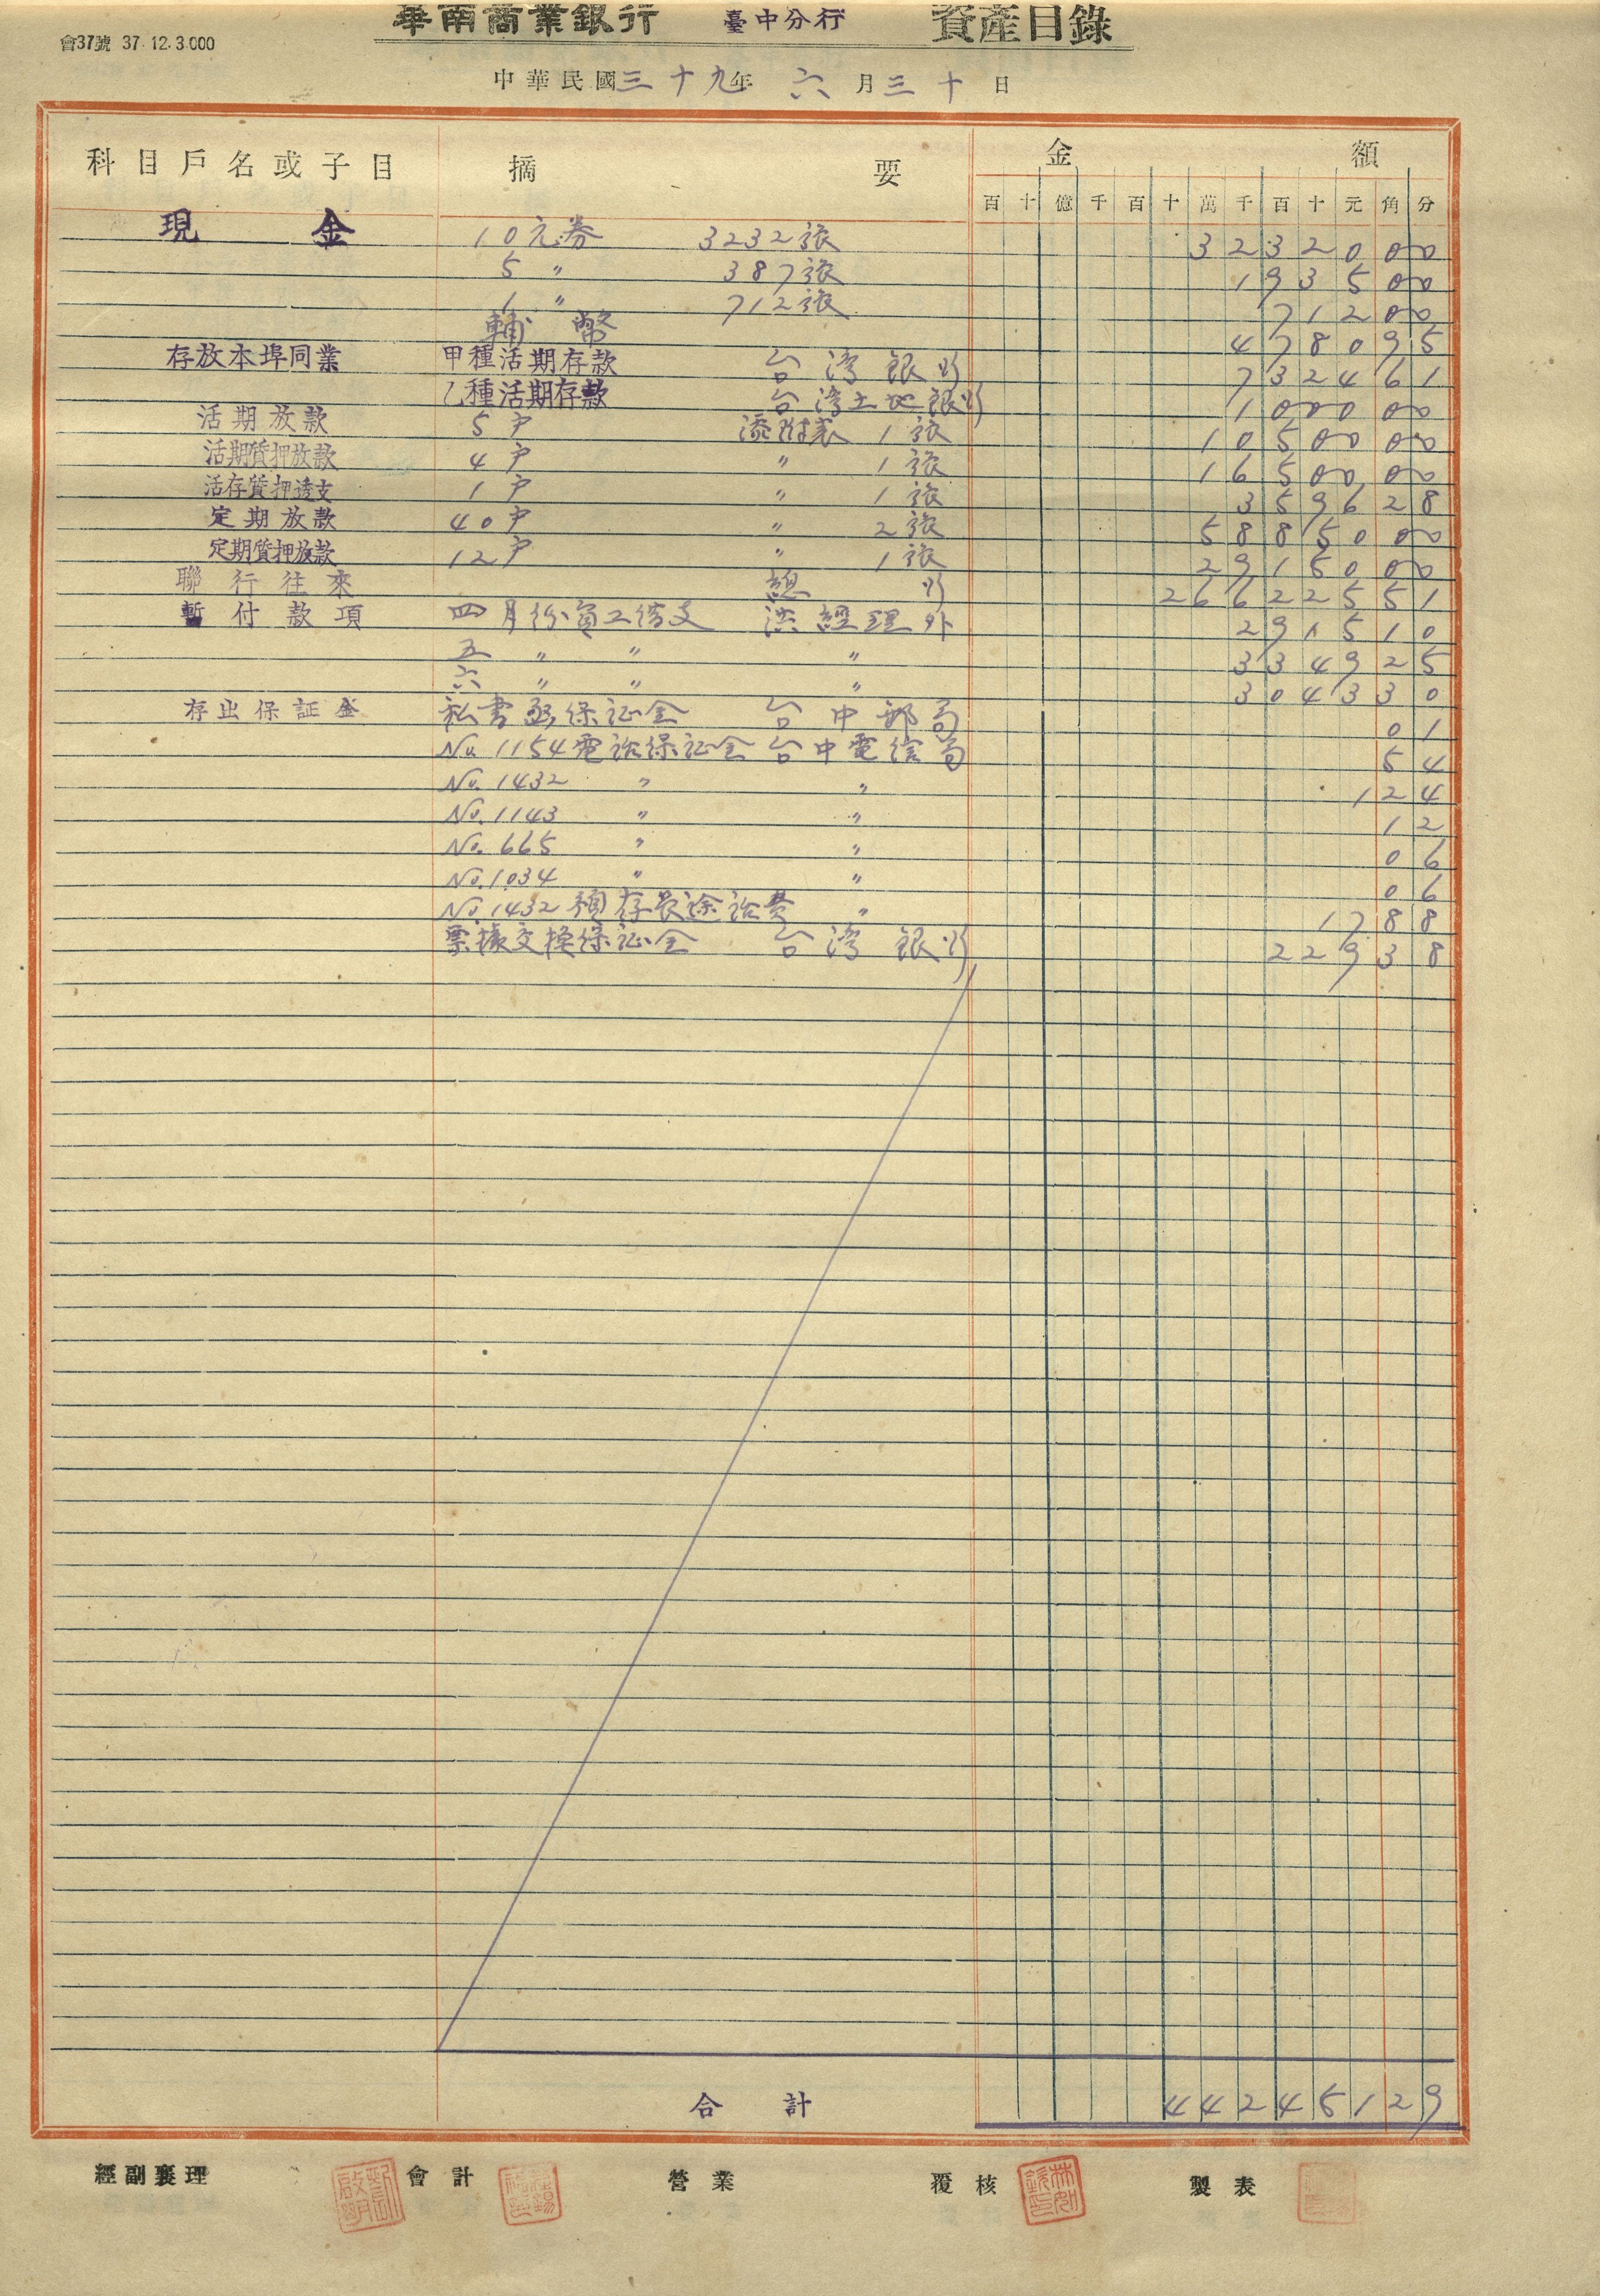 華南商業銀行 臺中分行 資產目錄
會37號 37.12.3.000
中華民國三十九年六月三十日
科目戶名或子目 摘要 金額
百十億千百十萬千百十元角分
現金 10元券 3232張 3232000
5 〃 387張 193500
1 〃 712張 71200
輔幣 478095
存放本埠同業 甲種活期存款 台湾銀行 732461
乙種活期存款 台湾土地銀行 100000
活期放款 5戸 添附表1張 1050000
活期質押放款 4戸 〃 1張 1650000
活存質押透支 1戸 〃 1張 359628
定期放款 40戸 〃 2張 5885000
定期質押放款 12戸 〃 1張 2915000
聯行往來 總行 26622551
暫付款項 四月份員工借支 洪經理外 291510
五 〃 〃 〃 334925
六 〃 〃 〃 304330
存出保証金 私書函保証金 台中郵局 01
No. 1154電話保証金 台中電信局 54
No. 1432 〃 〃 124
No. 1143 〃 〃 12
No. 665 〃 〃 06
No. 1034 〃 〃 06
No. 1432 預存長途話費 〃 1788
票據交換保証金 台湾銀行 22938
合計 44245129
經副襄理 會計 營業 覆核 製表